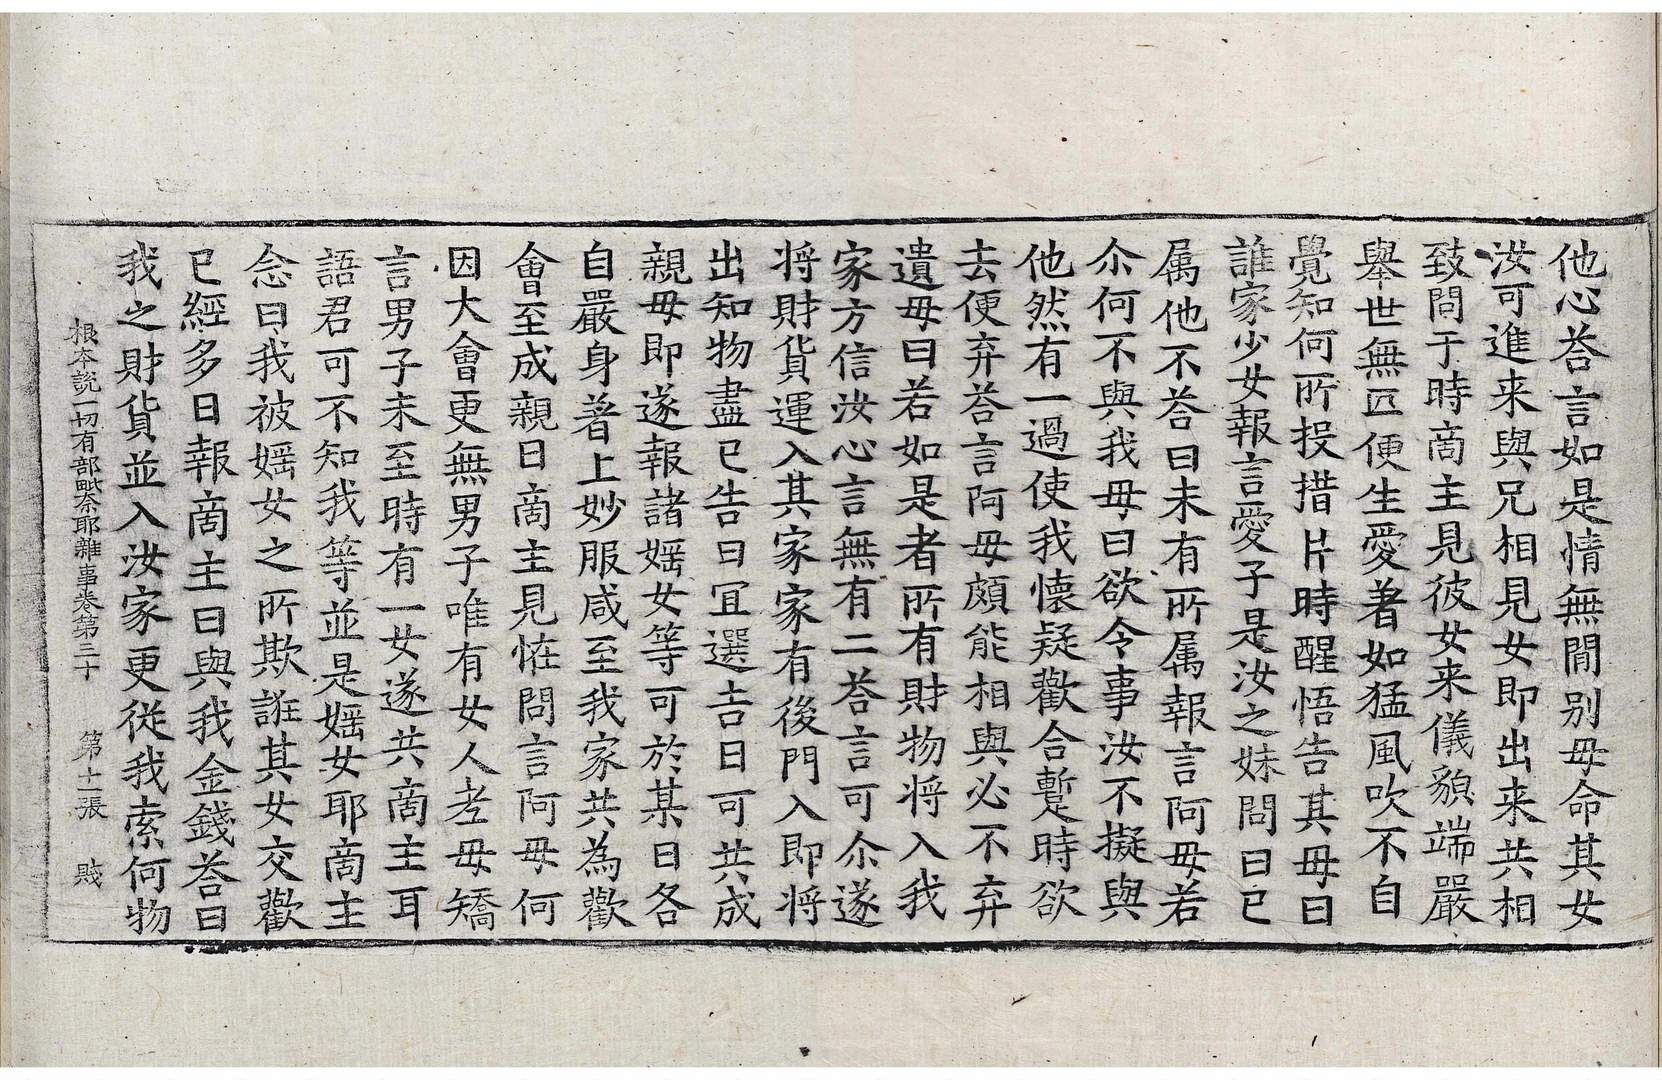 他心荅言如是情無閒别毋命其女
汝可進来與兄相見女即出来共相
致問于時啇主見彼女来儀貌端嚴
舉世無匹便生愛著如猛風吹不自
覺知何所投措片時醒悟告其毋曰
誰家少女報言愛子是汝之妹問曰已
属他不荅曰未有所属報言阿毋若
尒何不與我毋曰欲令事汝不擬與
他然有一過使我懷疑歡合暫時欲
去便弃荅言阿毋頗能相與必不弃
遺毋曰若如是者所有財物将入我
家方信汝心言無有二荅言可尒遂
将財貨運入其家家有後門入即将
出知物盡已告曰冝選吉日可共成
親毋即遂報諸婬女等可於某日各
自嚴身著上妙服咸至我家共為歡
會至成親日啇主見恠問言阿毋何
因大會更無男子唯有女人老毋矯
言男子未至時有一女遂共啇主耳
語君可不知我等並是婬女耶啇主
念曰我被婬女之所欺誑其女交歡
已經多日報啇主曰與我金錢荅曰
我之財貨並入汝家更從我索何物
根本說一切有部毗奈耶雜事卷第三十 第十一張 賤